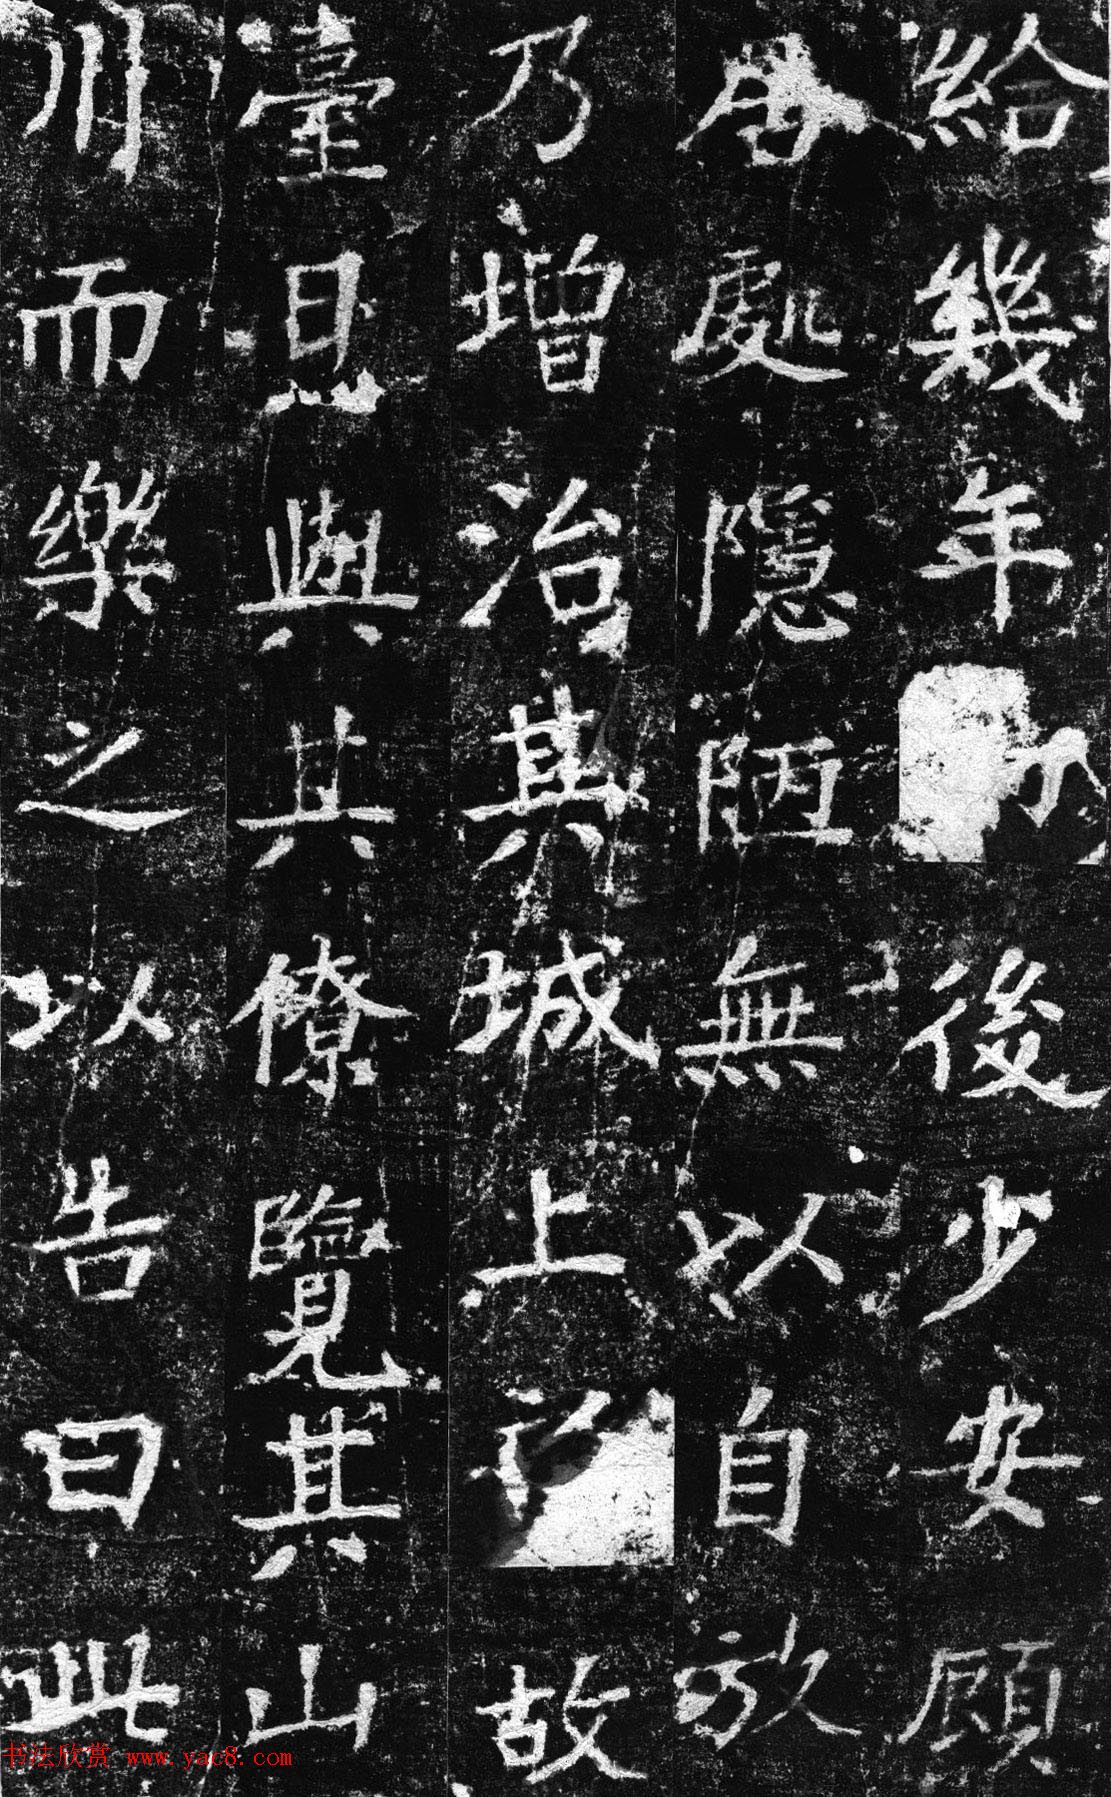 給幾年後少安顧
居處隱陋無以自放
乃增治其城上故
臺日與其僚覽其山
川而樂之以告曰此
书法欣赏 www.yac8.com